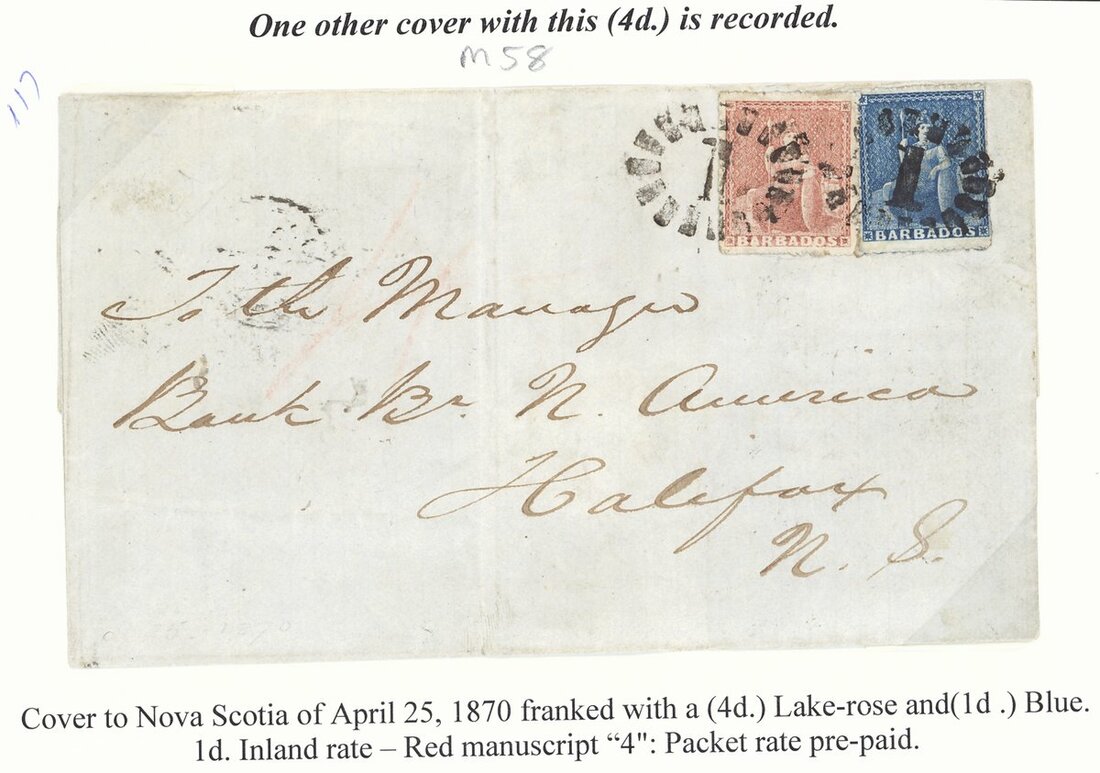 One other cover with this (4d.) is recorded.
M58
117
1
BARBADOS
1
BARBADOS
To the Manager
Bank Br. N. America
Halifax
N. S.
Cover to Nova Scotia of April 25, 1870 franked with a (4d.) Lake-rose and(1d .) Blue.
1d. Inland rate – Red manuscript “4": Packet rate pre-paid.